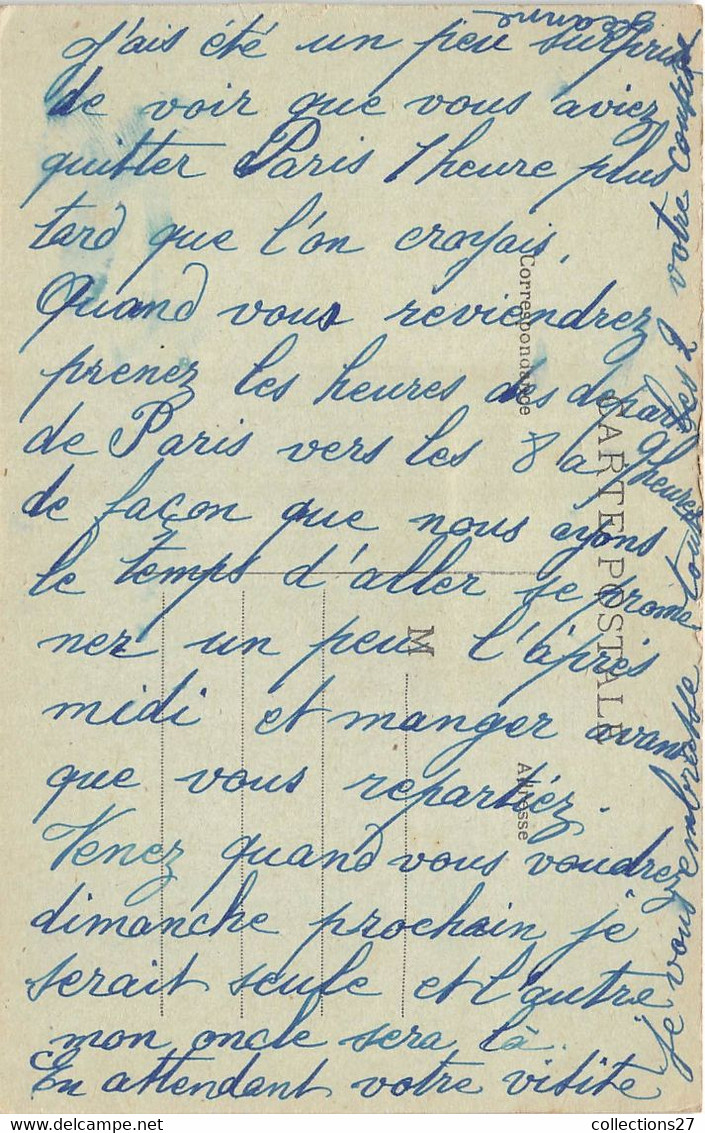 J'ais été un peu surprise
de voir que vous aviez
quitter Paris 1 heure plus
tard que l'on croyais.
Quand vous reviendrez
prenez les heures des départs
de Paris vers les 8 a 9 heures
de façon que nous ayons
le temps d'aller se prome
ner un peu l'après
midi et manger avant
que vous repartiez.
Venez quand vous voudrez
dimanche prochain je
serait seule et l'autre
mon oncle sera là.
En attendant votre visite
je vous embrasse tous
votre
CARTE POSTALE
Correspondance
Adresse
M
collections27